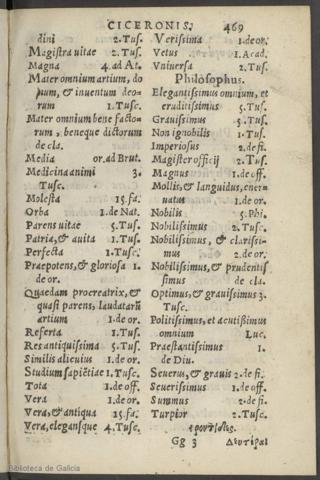 CICERONIS. 469
dini 2.Tus.
Magistra uitae 2.Tus.
Magna 4.ad At.
Mater omnium artium, do
num, & inuentum deo-
rum 1.Tusc.
Mater omnium bene facto-
rum, beneque dictorum
de cla.
Media or.ad Brut.
Medicina animi 3.
Tusc.
Molesta 15.fa.
Orba 1.de Nat.
Parens uitae 5.Tus.
Patria, & auita 1.Tus.
Perfecta 1.Tusc.
Praepotens, & gloriosa 1.
de or.
Quaedam procreatrix, &
quasi parens, laudatarũ
artium 1.de or.
Referta 1.Tus.
Res antiquissima 5.Tus.
Similis alicuius 1.de or.
Studium sapiẽtiae 1.Tusc.
Tota 1.de off.
Vera 1.de or.
Vera, & antiqua 15.fa.
Vera, elegansque 4.Tusc.
Verissima 1.de or.
Vetus 1.Acad.
Vniuersa 2.Tus.
Philosophus.
Elegantissimus omnium, et
eruditissimus 5.Tus.
Grauissimus 5.Tus.
Non ignobilis 1.Tus.
Imperiosus 2.de fi.
Magister officij 2.Tus.
Magnus 1.de off.
Mollis, & languidus, ener-
uatus 1.de or.
Nobilis 5.Phi.
Nobilissimus 2.Tusc.
Nobilissimus, & clarissi-
mus 2.de or.
Nobilissimus, & prudentis
simus de cla.
Optimus, & grauissimus 3.
Tusc.
Politissimus, et acutißimus
omnium Luc.
Praestantissimus 1.
de Diu.
Seuerus, & grauis 2.de fi.
Seuerissimus 1.de off.
Summus 2.de fi.
Turpior 2.Tusc.
Gg 3 Δευτέραι
Biblioteca de Galicia